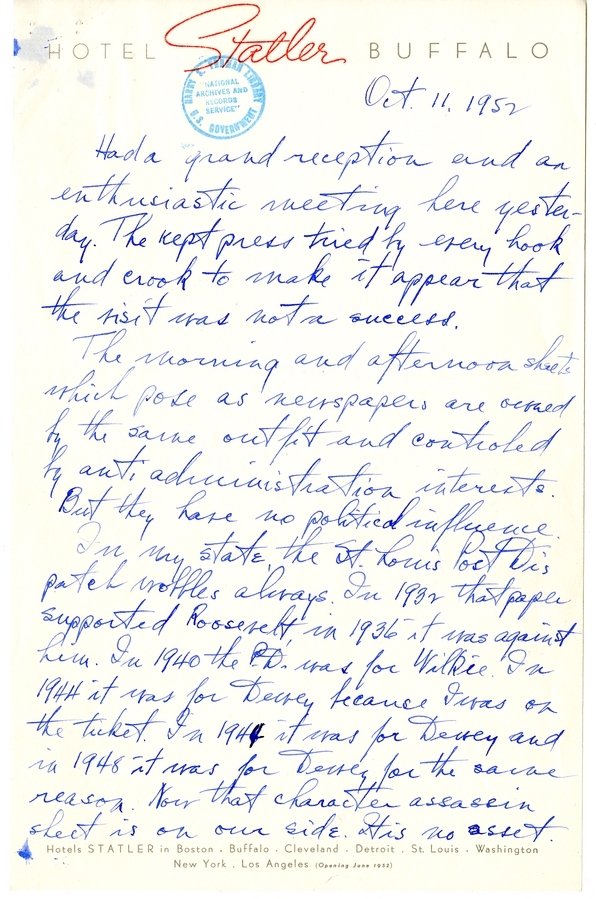 HOTEL Statler BUFFALO
HARRY S. TRUMAN LIBRARY
"NATIONAL
ARCHIVES AND
RECORDS
SERVICE"
U.S. GOVERNMENT
Oct. 11, 1952
Had a grand reception and an
enthusiastic meeting here yester-
day. The kept press tried by every hook
and crook to make it appear that
the visit was not a success.
The morning and afternoon sheets
which pose as newspapers are owned
by the same outfit and controled
by anti administration interests.
But they have no political influence.
In my state, the St. Louis Post Dis
patch wobbles always. In 1932 that paper
supported Roosevelt, in 1936 it was against
him. In 1940 the P.D. was for Wilkie. In
1944 it was for Dewey because I was on
the ticket. In 1944 it was for Dewey and
in 1948 it was for Dewey for the same
reason. Now that character assassin
sheet is on our side. It is no asset.
Hotels STATLER in Boston . Buffalo . Cleveland . Detroit . St. Louis . Washington
New York . Los Angeles (Opening June 1952)